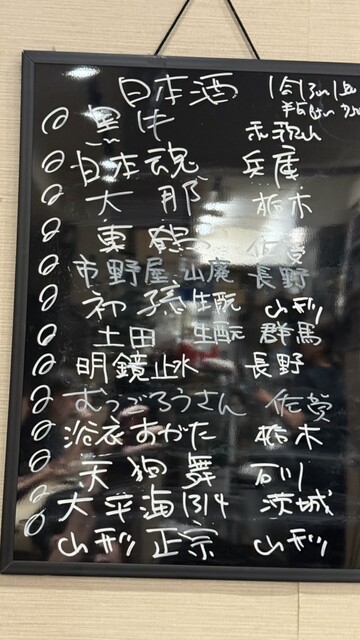 日本酒
黒牛 和歌山
日本魂 兵庫
大那 栃木
東鶴 佐賀
市野屋 山廃 長野
初孫 生酛 山形
土田 生酛 群馬
明鏡止水 長野
むつごろうさん 佐賀
浴衣おがた 栃木
天狗舞 石川
大平海1314 茨城
山形正宗 山形